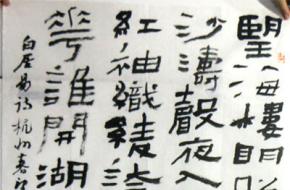 望海樓明
沙濤聲夜入
紅袖織綾
華誰開湖
白居易詩杭州春